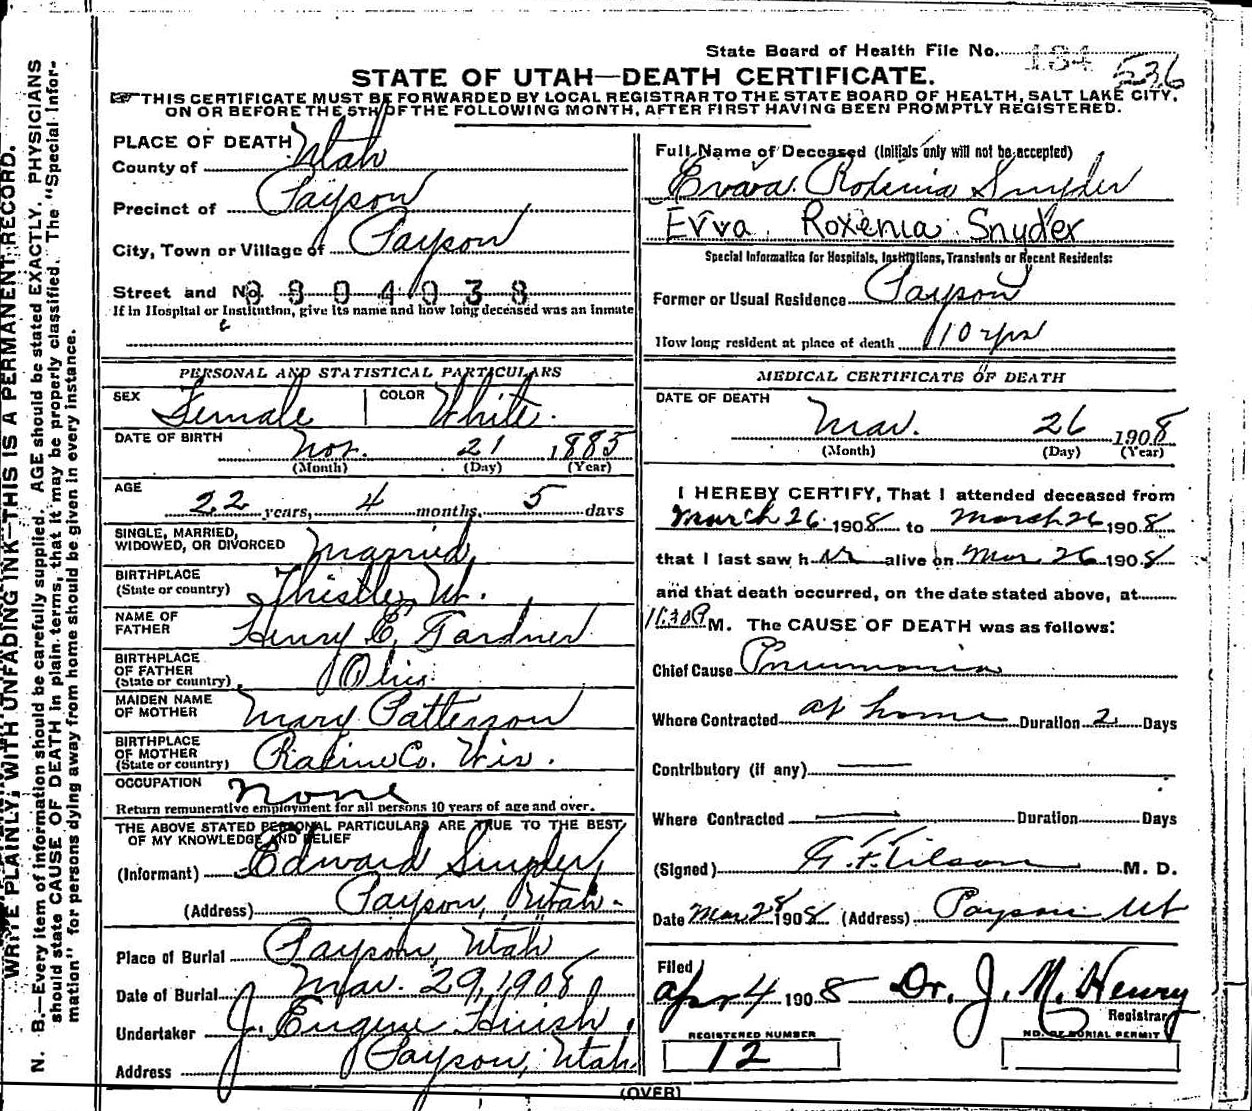 State Board of Health File No. 134
536
STATE OF UTAH—DEATH CERTIFICATE.
☞THIS CERTIFICATE MUST BE FORWARDED BY LOCAL REGISTRAR TO THE STATE BOARD OF HEALTH, SALT LAKE CITY,
ON OR BEFORE THE 5TH OF THE FOLLOWING MONTH, AFTER FIRST HAVING BEEN PROMPTLY REGISTERED.
WRITE PLAINLY, WITH UNFADING INK—THIS IS A PERMANENT RECORD.
N. B.—Every item of information should be carefully supplied. AGE should be stated EXACTLY. PHYSICIANS
should state CAUSE OF DEATH in plain terms, that it may be properly classified. The "Special Infor-
mation" for persons dying away from home should be given in every instance.
PLACE OF DEATH
County of Utah
Precinct of Payson
City, Town or Village of Payson
Street and No. 804038
If in Hospital or Institution, give its name and how long deceased was an inmate
PERSONAL AND STATISTICAL PARTICULARS
SEX Female COLOR White.
DATE OF BIRTH Nov. 21 1885
(Month) (Day) (Year)
AGE
22 years, 4 months, 5 days
SINGLE, MARRIED,
WIDOWED, OR DIVORCED Married
BIRTHPLACE
(State or country) Thistle, Ut.
NAME OF
FATHER Henry E. Gardner
BIRTHPLACE
OF FATHER
(State or country) Ohio
MAIDEN NAME
OF MOTHER Mary Patterson
BIRTHPLACE
OF MOTHER
(State or country) Racine Co. Wis.
OCCUPATION None
Return remunerative employment for all persons 10 years of age and over.
THE ABOVE STATED PERSONAL PARTICULARS ARE TRUE TO THE BEST
OF MY KNOWLEDGE AND BELIEF
(Informant) Edward Snyder
(Address) Payson, Utah.
Place of Burial Payson, Utah
Date of Burial Mar. 29, 1908
Undertaker J. Eugene Huish,
Address Payson, Utah
Full Name of Deceased (Initials only will not be accepted)
Evava Roxenia Snyder
Evva Roxenia Snyder
Special Information for Hospitals, Institutions, Transients or Recent Residents:
Former or Usual Residence Payson
How long resident at place of death 10 yrs
MEDICAL CERTIFICATE OF DEATH
DATE OF DEATH
Mar. 26 1908
(Month) (Day) (Year)
I HEREBY CERTIFY, That I attended deceased from
March 26 1908 to March 26 1908
that I last saw h er alive on Mar. 26 1908
and that death occurred, on the date stated above, at
11:30 P M. The CAUSE OF DEATH was as follows:
Chief Cause Pneumonia
Where Contracted at home Duration 2 Days
Contributory (if any)
Where Contracted Duration Days
(Signed) G. F. Tilson M. D.
Date Mar 28 1908 (Address) Payson Ut
Filed
Apr 4 1908 Dr. J. M. Henry
Registrar
REGISTERED NUMBER
12
NO. OF BURIAL PERMIT
(OVER)